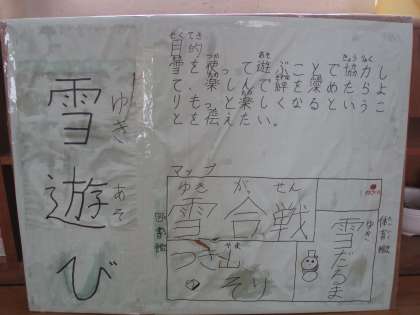 雪遊び
ゆき あそ
目的
雪を使って遊ぶことで協力し
て、楽しんで絆を深めたらよ
り、もっと楽しくなるというこ
とを伝えたい。
マップ
ゆき がっ せん
雪合戦
つき山
やま
そり
ゆき
雪だるま
図書館
体育館